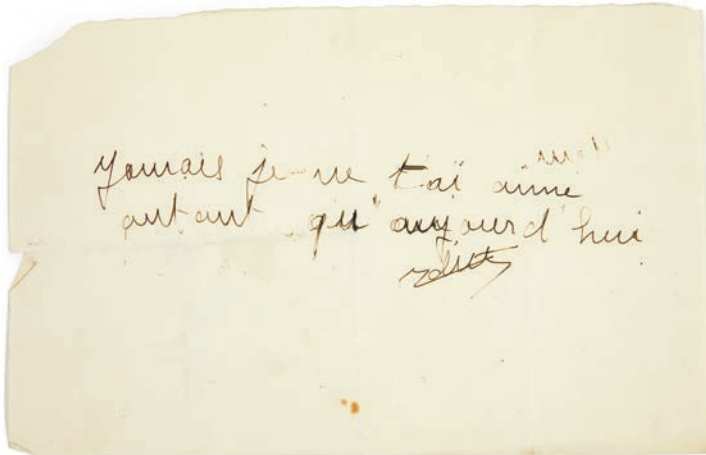 Jamais je ne t'ai aimé
autant qu'aujourd'hui